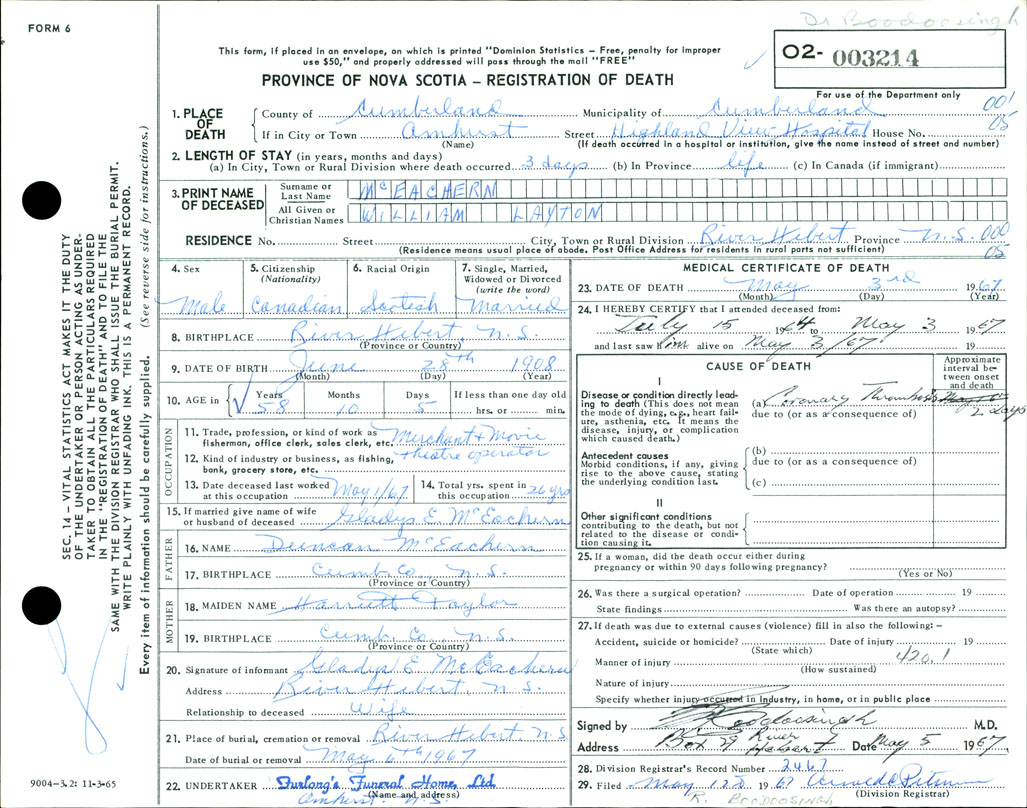 Dr Boodoosingh
FORM 6
This form, if placed in an envelope, on which is printed "Dominion Statistics – Free, penalty for improper
use $50," and properly addressed will pass through the mail "FREE"
02- 003214
PROVINCE OF NOVA SCOTIA – REGISTRATION OF DEATH
For use of the Department only
001
05
1. PLACE OF DEATH
County of Cumberland Municipality of Cumberland
If in City or Town Amhurst Street Highland View Hospital House No.
(Name) (If death occurred in a hospital or institution, give the name instead of street and number)
2. LENGTH OF STAY (in years, months and days)
(a) In City, Town or Rural Division where death occurred 3 days (b) In Province life (c) In Canada (if immigrant)
3. PRINT NAME OF DECEASED
Surname or Last Name McEACHERN
All Given or Christian Names WILLIAM LAYTON
RESIDENCE No. Street City, Town or Rural Division River Hebert Province N.S. 000
05
(Residence means usual place of abode. Post Office Address for residents in rural parts not sufficient)
4. Sex Male
5. Citizenship (Nationality) Canadian
6. Racial Origin Scotish
7. Single, Married, Widowed or Divorced (write the word) Married
8. BIRTHPLACE River Hebert, N.S.
(Province or Country)
9. DATE OF BIRTH June 28th 1908
(Month) (Day) (Year)
10. AGE in Years 58 Months 10 Days 5 If less than one day old
hrs. or min.
OCCUPATION
11. Trade, profession, or kind of work as fisherman, office clerk, sales clerk, etc. Merchant & Movie
theatre operator
12. Kind of industry or business, as fishing, bank, grocery store, etc.
13. Date deceased last worked at this occupation May 1/67
14. Total yrs. spent in this occupation 26 yrs
15. If married give name of wife or husband of deceased Gladys E. McEachern
FATHER
16. NAME Duncan McEachern
17. BIRTHPLACE Cumb. Co., N.S.
(Province or Country)
MOTHER
18. MAIDEN NAME Harriett Taylor
19. BIRTHPLACE Cumb. Co., N.S.
(Province or Country)
20. Signature of informant Gladys E McEachern
Address River Hebert, N.S.
Relationship to deceased Wife
21. Place of burial, cremation or removal River Hebert N.S
Date of burial or removal May 6th 1967
22. UNDERTAKER Furlong's Funeral Home, Ltd.
(Name and address)
Amhurst N.S.
MEDICAL CERTIFICATE OF DEATH
23. DATE OF DEATH May 3rd 1967
(Month) (Day) (Year)
24. I HEREBY CERTIFY that I attended deceased from:
July 15 1964 to May 3 1967
and last saw him alive on May 3/67 19
CAUSE OF DEATH
Approximate interval between onset and death
I
Disease or condition directly leading to death (This does not mean the mode of dying, e.g., heart failure, asthenia, etc. It means the disease, injury, or complication which caused death.)
(a) Coronary Thrombosis
2 days
due to (or as a consequence of)
Antecedent causes
Morbid conditions, if any, giving rise to the above cause, stating the underlying condition last.
(b)
due to (or as a consequence of)
(c)
II
Other significant conditions contributing to the death, but not related to the disease or condition causing it.
25. If a woman, did the death occur either during pregnancy or within 90 days following pregnancy?
(Yes or No)
26. Was there a surgical operation? Date of operation 19
State findings Was there an autopsy?
27. If death was due to external causes (violence) fill in also the following: –
Accident, suicide or homicide? Date of injury 19
(State which)
420.1
Manner of injury
(How sustained)
Nature of injury
Specify whether injury occurred in Industry, in home, or in public place
Signed by R Boodoosingh M.D.
Address Box 29 River Hebert Date May 5 1967
28. Division Registrar's Record Number 2467
29. Filed May 1967
(Division Registrar)
R. BOODOOSINGH
SEC. 14 – VITAL STATISTICS ACT MAKES IT THE DUTY
OF THE UNDERTAKER OR PERSON ACTING AS UNDER-
TAKER TO OBTAIN ALL THE PARTICULARS REQUIRED
IN THE "REGISTRATION OF DEATH" AND TO FILE THE
SAME WITH THE DIVISION REGISTRAR WHO SHALL ISSUE THE BURIAL PERMIT.
WRITE PLAINLY WITH UNFADING INK. THIS IS A PERMANENT RECORD.
Every item of information should be carefully supplied. (See reverse side for instructions.)
9004–3.2: 11-3-65